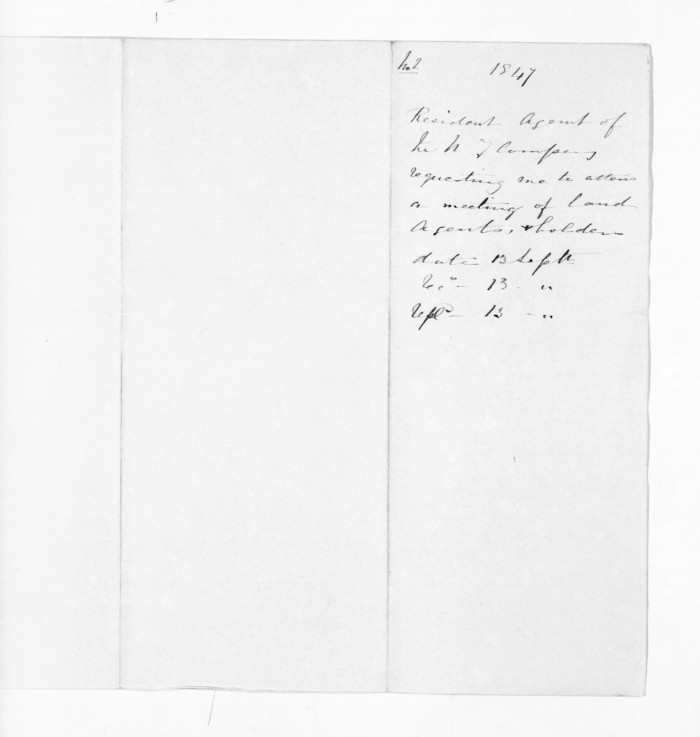 No 2 1847
Resident Agent of
the N Z Company
requesting me to attend
a meeting of land
Agents, & holders
date 13 Septh
Recd - 13 - "
Repld - 13 - "